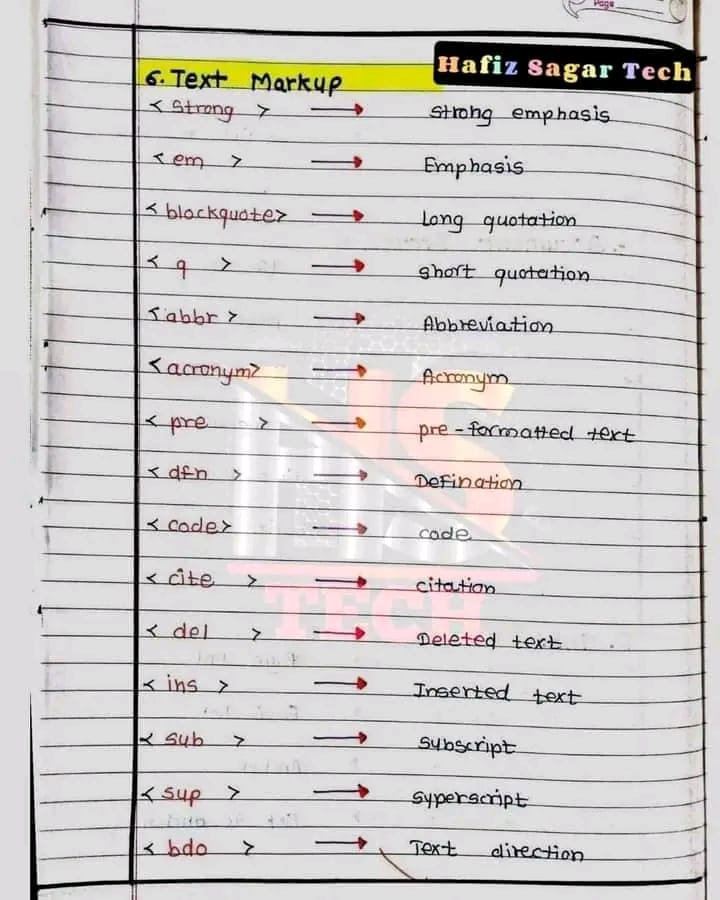 Page
Hafiz Sagar Tech
6. Text Markup
< Strong > → strong emphasis
< em > → Emphasis
< blockquote> → Long quotation
< q > → short quotation
< abbr > → Abbreviation
< acronym> → Acronym
< pre > → pre-formatted text
< dfn > → Defination
< code> → code
< cite > → citation
< del > → Deleted text
< ins > → Inserted text
< sub > → subscript
< sup > → syperscript
< bdo > → Text direction
HS
TECH